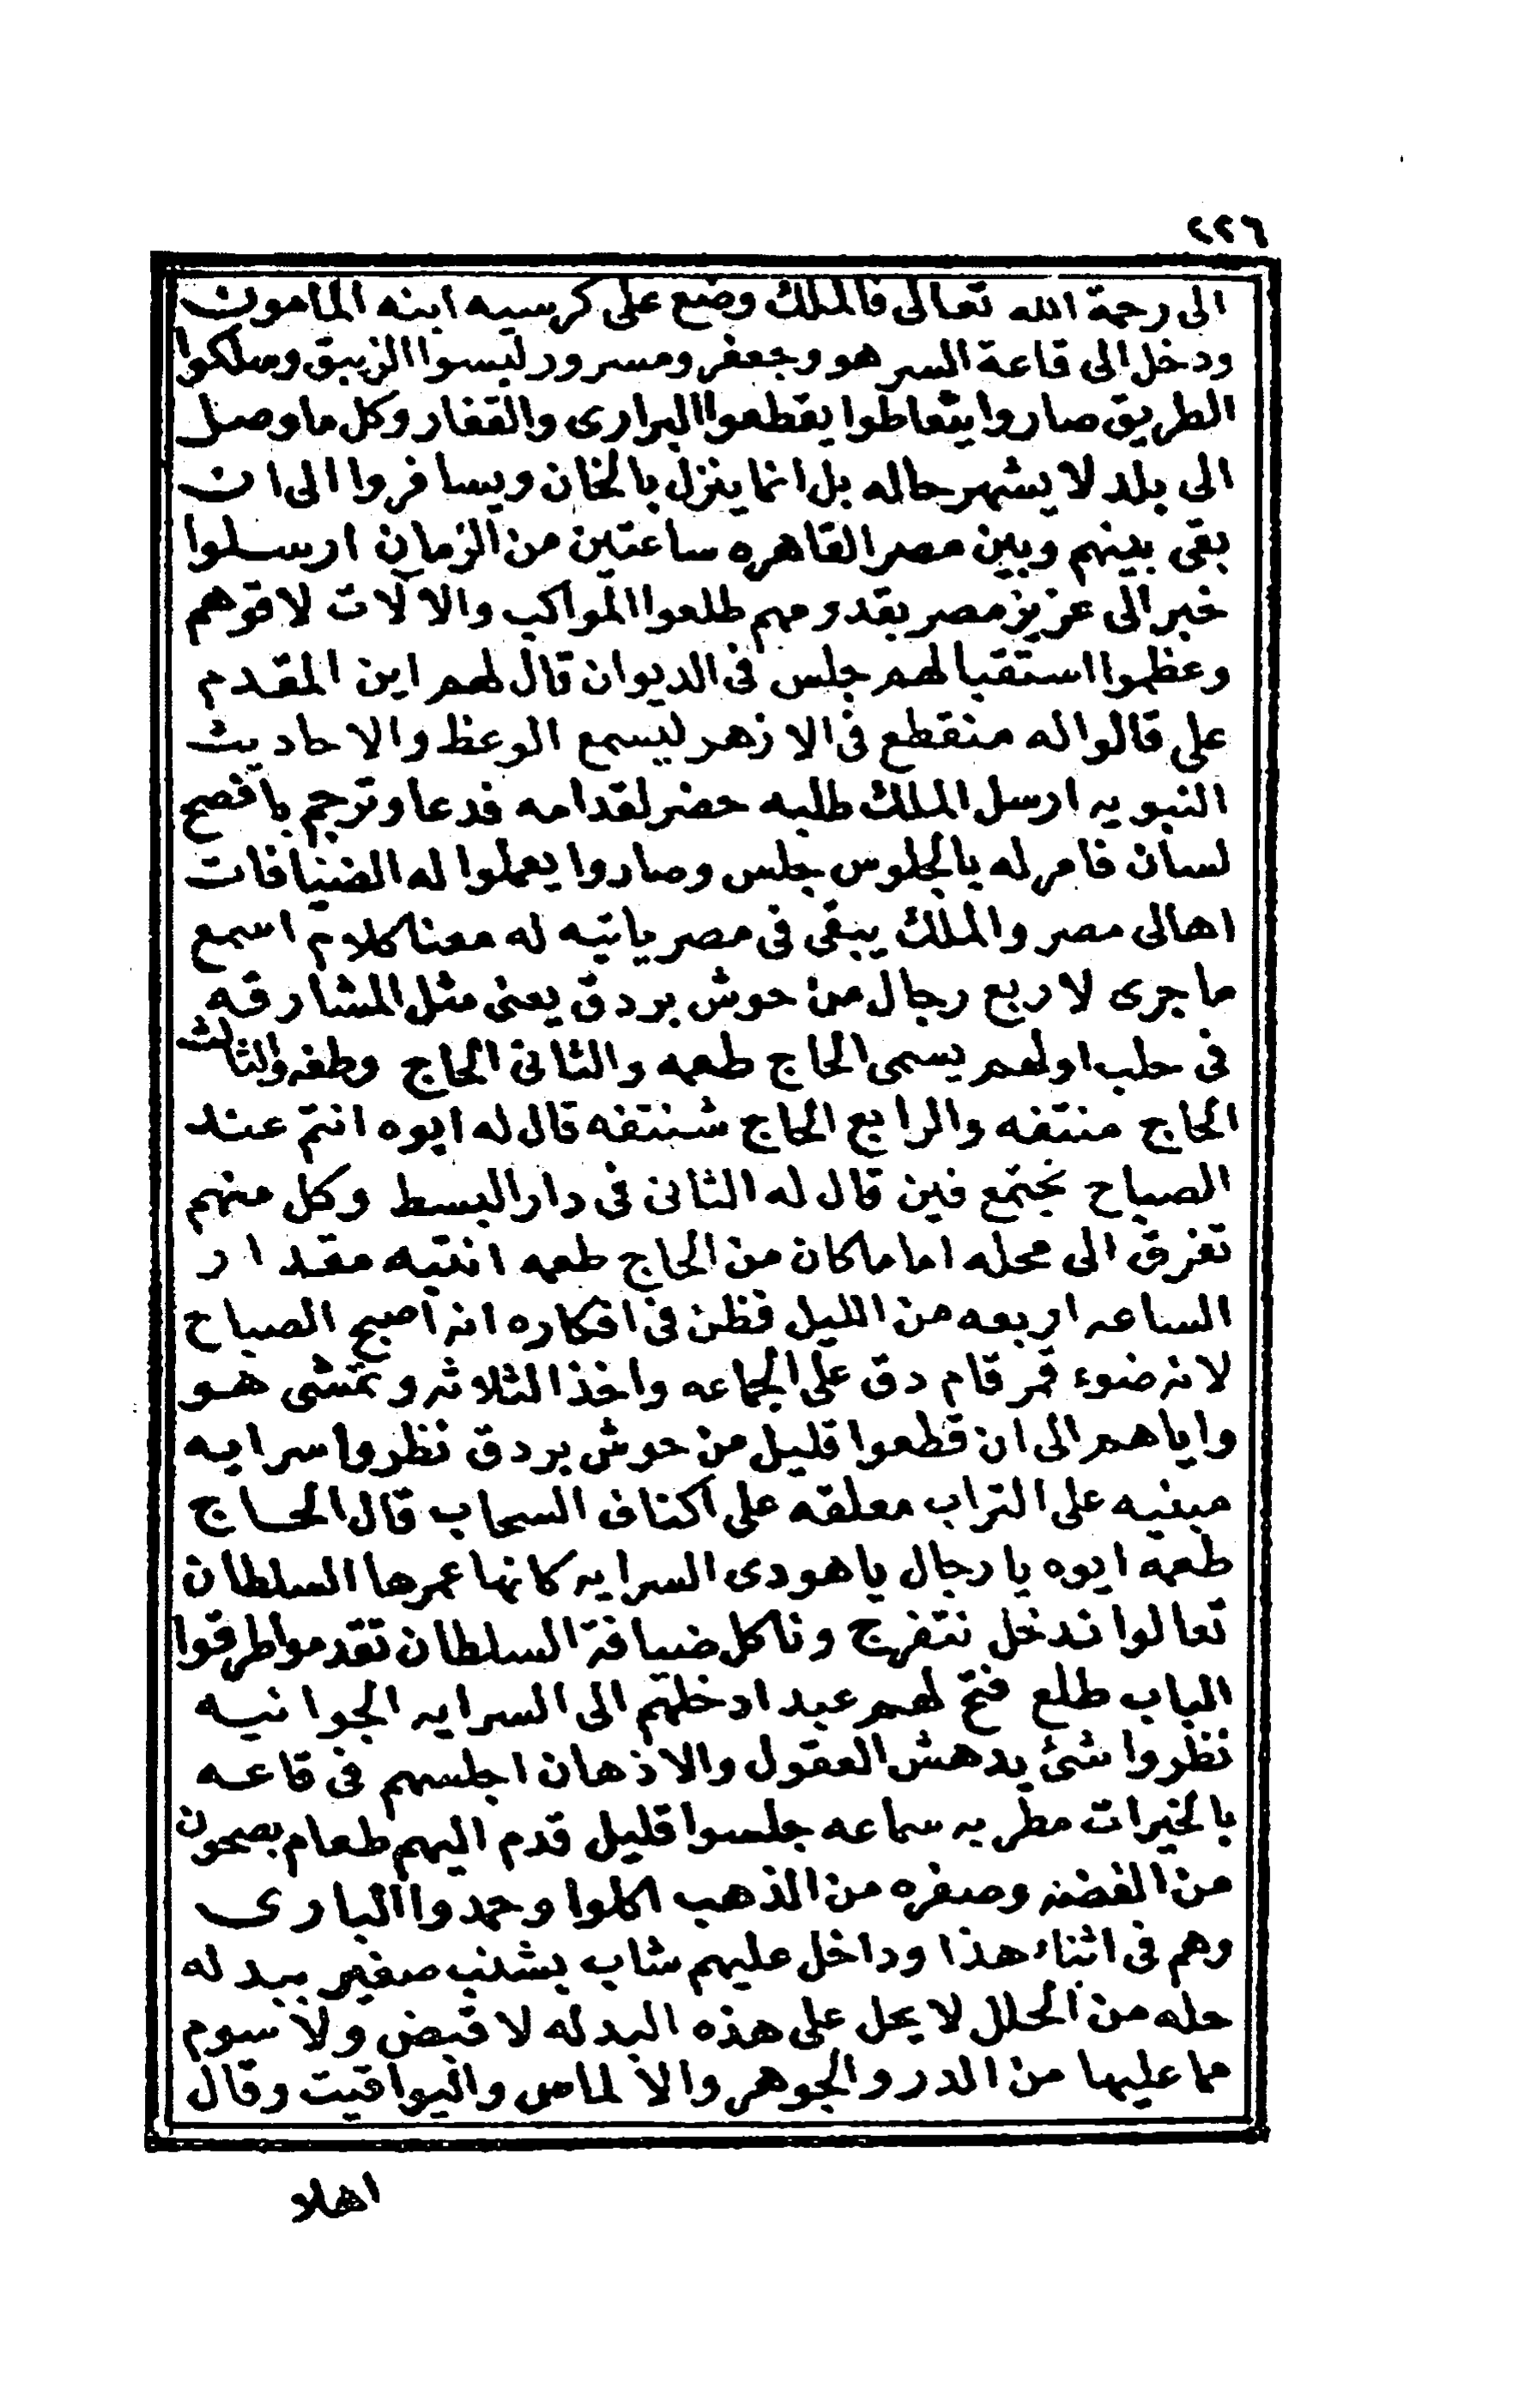 ٢٢٦
الى رحمة الله تعالى فالملك وضع على كرسيه ابنه المامون
ودخل الى قاعة السر هو وجعفر ومسرور لبسوا الزيبق وسلكوا
الطريق صاروا يتعاطوا يقطعوا البرارى والقفار وكل ما وصل
الى بلد لا يشهر حاله بل انما ينزل بالخان ويسافروا الى ان
بقى بينهم وبين مصر القاهره ساعتين من الزمان ارسلوا
خبر الى عزيز مصر بقدومهم طلعوا المواكب والالات لاقوهم
وعظموا استقبالهم جلس فى الديوان قال لهم اين المقدم
على قالوا له منقطع فى الازهر ليسمع الوعظ والاحاديث
النبويه ارسل الملك طلبه حضر لقدامه فدعا وترجم بافصح
لسان فامر له بالجلوس جلس وصاروا يعملوا له الضيافات
اهالى مصر والملك يبقى فى مصر ياتيه له معنا كلام اسمع
ما جرى لاربع رجال من حوش بردق يعنى مثل المشارقه
فى حلب اولهم يسمى الحاج طعمه والثانى الحاج وطفه والثالث
الحاج منتفه والرابع الحاج شنتفه قال له ايوه انتم عند
الصباح نجتمع فين قال له الثانى فى دار البسط وكل منهم
تفرق الى محله اما ماكان من الحاج طعمه انتبه مقدار
الساعه اربعه من الليل فظن فى افكاره انه اصبح الصباح
لانه ضوء قمر قام دق على الجماعه واخذ الثلاثه وتمشى هو
واياهم الى ان قطعوا قليل من حوش بردق نظروا سرايه
مبنيه على التراب معلقه على اكناف السحاب قال الحاج
طعمه ايوه يا رجال يا هودى السرايه كانها عمرها السلطان
تعالوا ندخل نتفرج وناكل ضيافة السلطان تقدموا طرقوا
الباب طلع فتح لهم عبد ادخلهم الى السرايه الجوانيه
نظروا شئ يدهش العقول والاذهان اجلسهم فى قاعه
بالخيرات مطربه سماعه جلسوا قليل قدم اليهم طعام بصحون
من الفضه وصفره من الذهب اكلوا وحمدوا البارى
وهم فى اثناء هذا وداخل عليهم شاب بشنب صغير ببدله
حله من الحلل لا يحل على هذه البدله لا قبض ولا سوم
مما عليها من الدر والجوهر والالماس واليواقيت وقال
اهلا